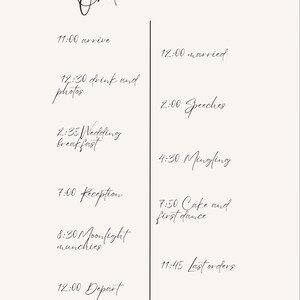 11:00 arrive
12:00 married
12:30 drink and
photos
2:00 Speeches
2:35 Wedding
breakfast
4:30 Mingling
7:00 Reception
7:50 Cake and
first dance
8:30 Moonlight
munchies
11:45 Last orders
12:00 Depart